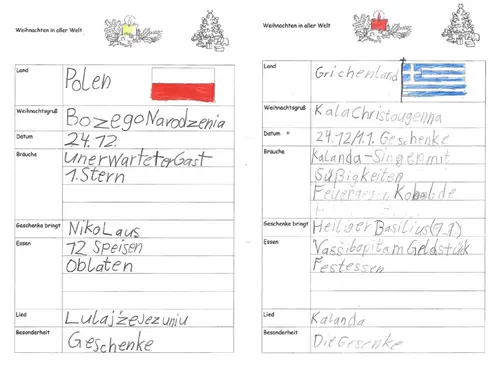 Weihnachten in aller Welt
Land Polen
Weihnachtsgruß BozegoNarodzenia
Datum 24.12.
Bräuche unerwarteterGast
1.Stern
Geschenke bringt NikoLaus
Essen 12 Speisen
Oblaten
Lied Lulajżejezuniu
Besonderheit Geschenke
Weihnachten in aller Welt
Land Grichenland
Weihnachtsgruß KalaChristougenna
Datum 24.12/1.1. Geschenke
Bräuche Kalanda-Singen mit
Süßigkeiten
Feuer gegen Kobolde
Geschenke bringt Heiliger Basilius(1.1)
Essen Vassilopitam Geldstük
Festessen
Lied Kalanda
Besonderheit Die Gesenke